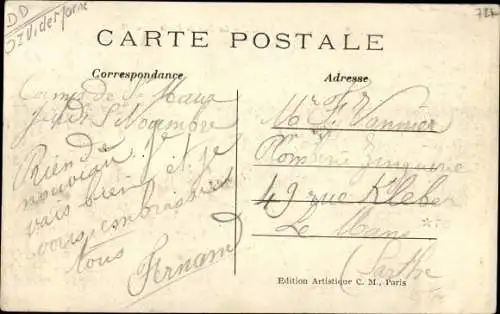 DD
CARTE POSTALE
Correspondance
Adresse
Camp de St Maur
Jeudi 5 Novembre
Rien de
nouveau. Je
vais bien et je
vous embrasse
tous
Fernand
Mr F. Vannier
Plomberie Zinguerie
49 rue Kleber
Le Mans
(Sarthe)
Edition Artistique C. M., Paris